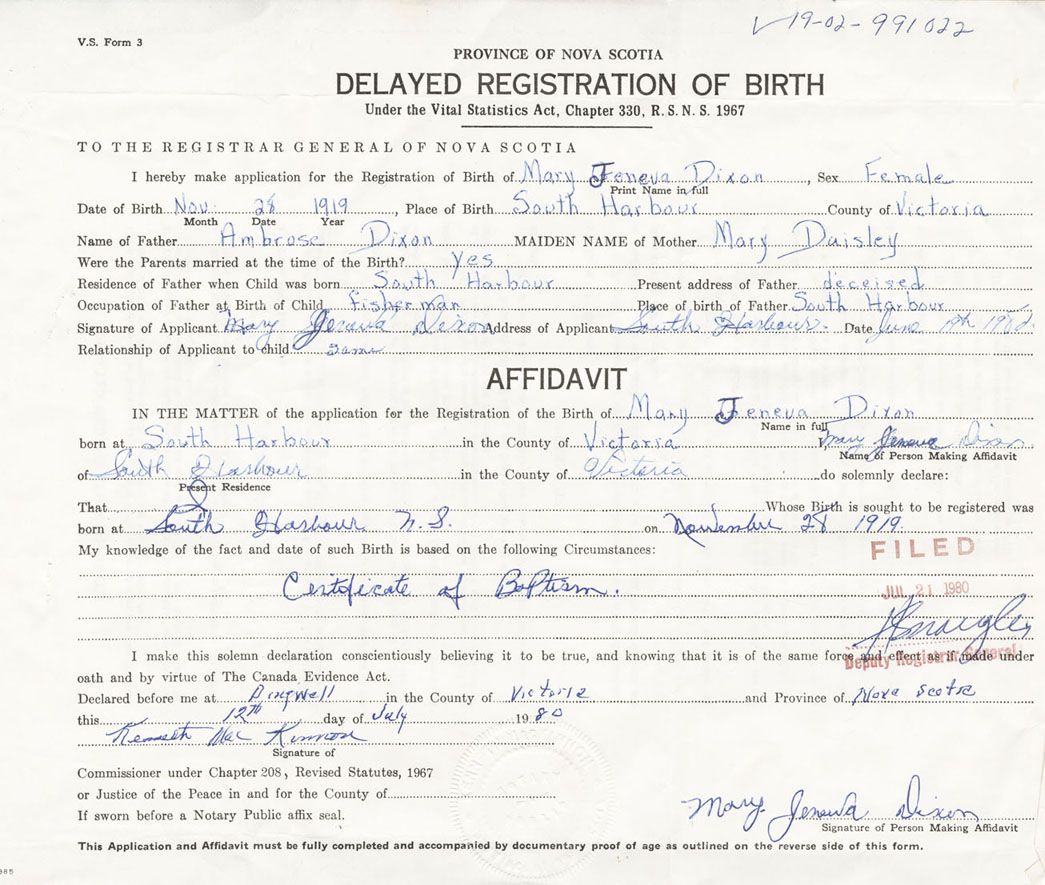 19-02-991022
V.S. Form 3
PROVINCE OF NOVA SCOTIA
DELAYED REGISTRATION OF BIRTH
Under the Vital Statistics Act, Chapter 330, R.S.N.S. 1967
TO THE REGISTRAR GENERAL OF NOVA SCOTIA
I hereby make application for the Registration of Birth of Mary Jeneva Dixon, Sex Female
Print Name in full
Date of Birth Nov. 28 1919, Place of Birth South Harbour County of Victoria
Month Date Year
Name of Father Ambrose Dixon MAIDEN NAME of Mother Mary Daisley
Were the Parents married at the time of the Birth? Yes
Residence of Father when Child was born South Harbour Present address of Father deceised
Occupation of Father at Birth of Child fisherman Place of birth of Father South Harbour
Signature of Applicant Mary Jeneva Dixon Address of Applicant South Harbour. Date June
Relationship of Applicant to child same
AFFIDAVIT
IN THE MATTER of the application for the Registration of the Birth of Mary Jeneva Dixon
Name in full
born at South Harbour in the County of Victoria I, Mary Jeneva Dixon
Name of Person Making Affidavit
of South Harbour in the County of Victoria do solemnly declare:
Present Residence
That Whose Birth is sought to be registered was
born at South Harbour N.S. on November 28 1919.
My knowledge of the fact and date of such Birth is based on the following Circumstances:
FILED
Certificate of Baptism.
JUL 21 1980
I make this solemn declaration conscientiously believing it to be true, and knowing that it is of the same force and effect as if made under
Deputy Registrar General
oath and by virtue of The Canada Evidence Act.
Declared before me at Dingwell in the County of Victoria and Province of Nova Scotia
this 12TH day of July 1980
Kenneth Mac Kinnon
Signature of
Commissioner under Chapter 208, Revised Statutes, 1967
or Justice of the Peace in and for the County of
If sworn before a Notary Public affix seal.
Mary Jeneva Dixon
Signature of Person Making Affidavit
This Application and Affidavit must be fully completed and accompanied by documentary proof of age as outlined on the reverse side of this form.